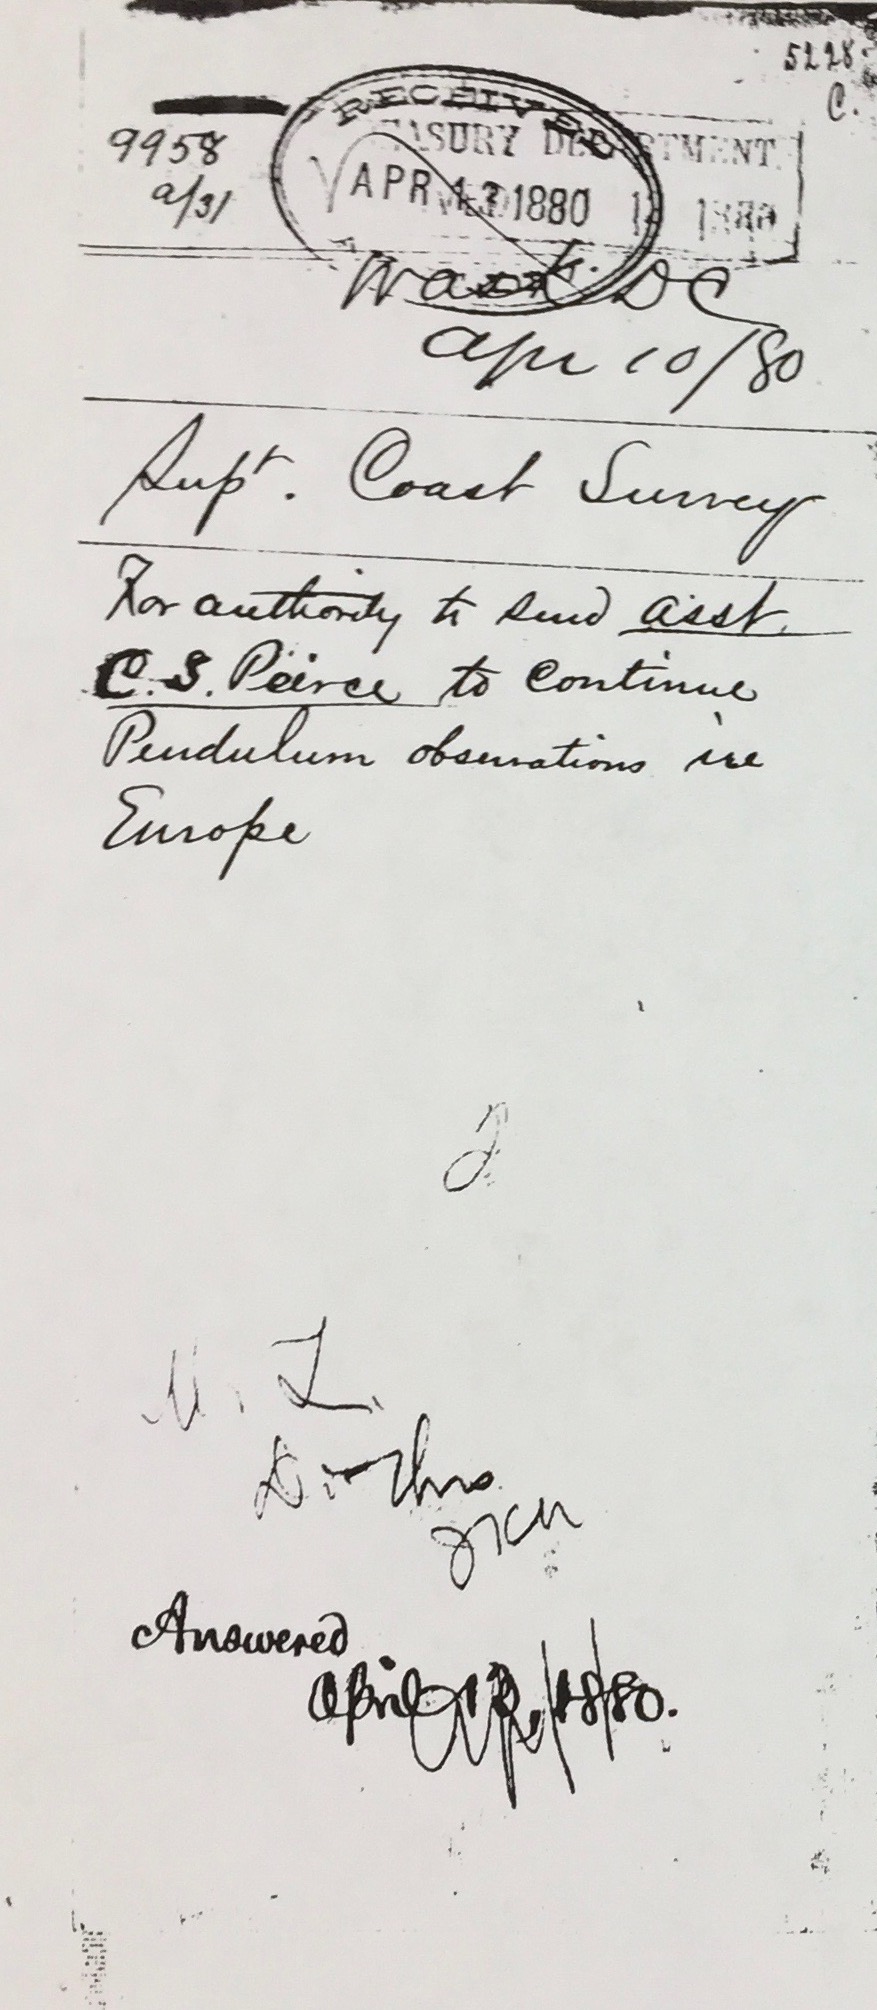 5228.
C.
9958
a/31
RECEIVED
TREASURY DEPARTMENT
APR 12 1880
Wash. DC
Apr 10/80
Supt. Coast Survey
For authority to send asst.
C. S. Peirce to continue
Pendulum observations in
Europe
Answered
April 12, 1880.